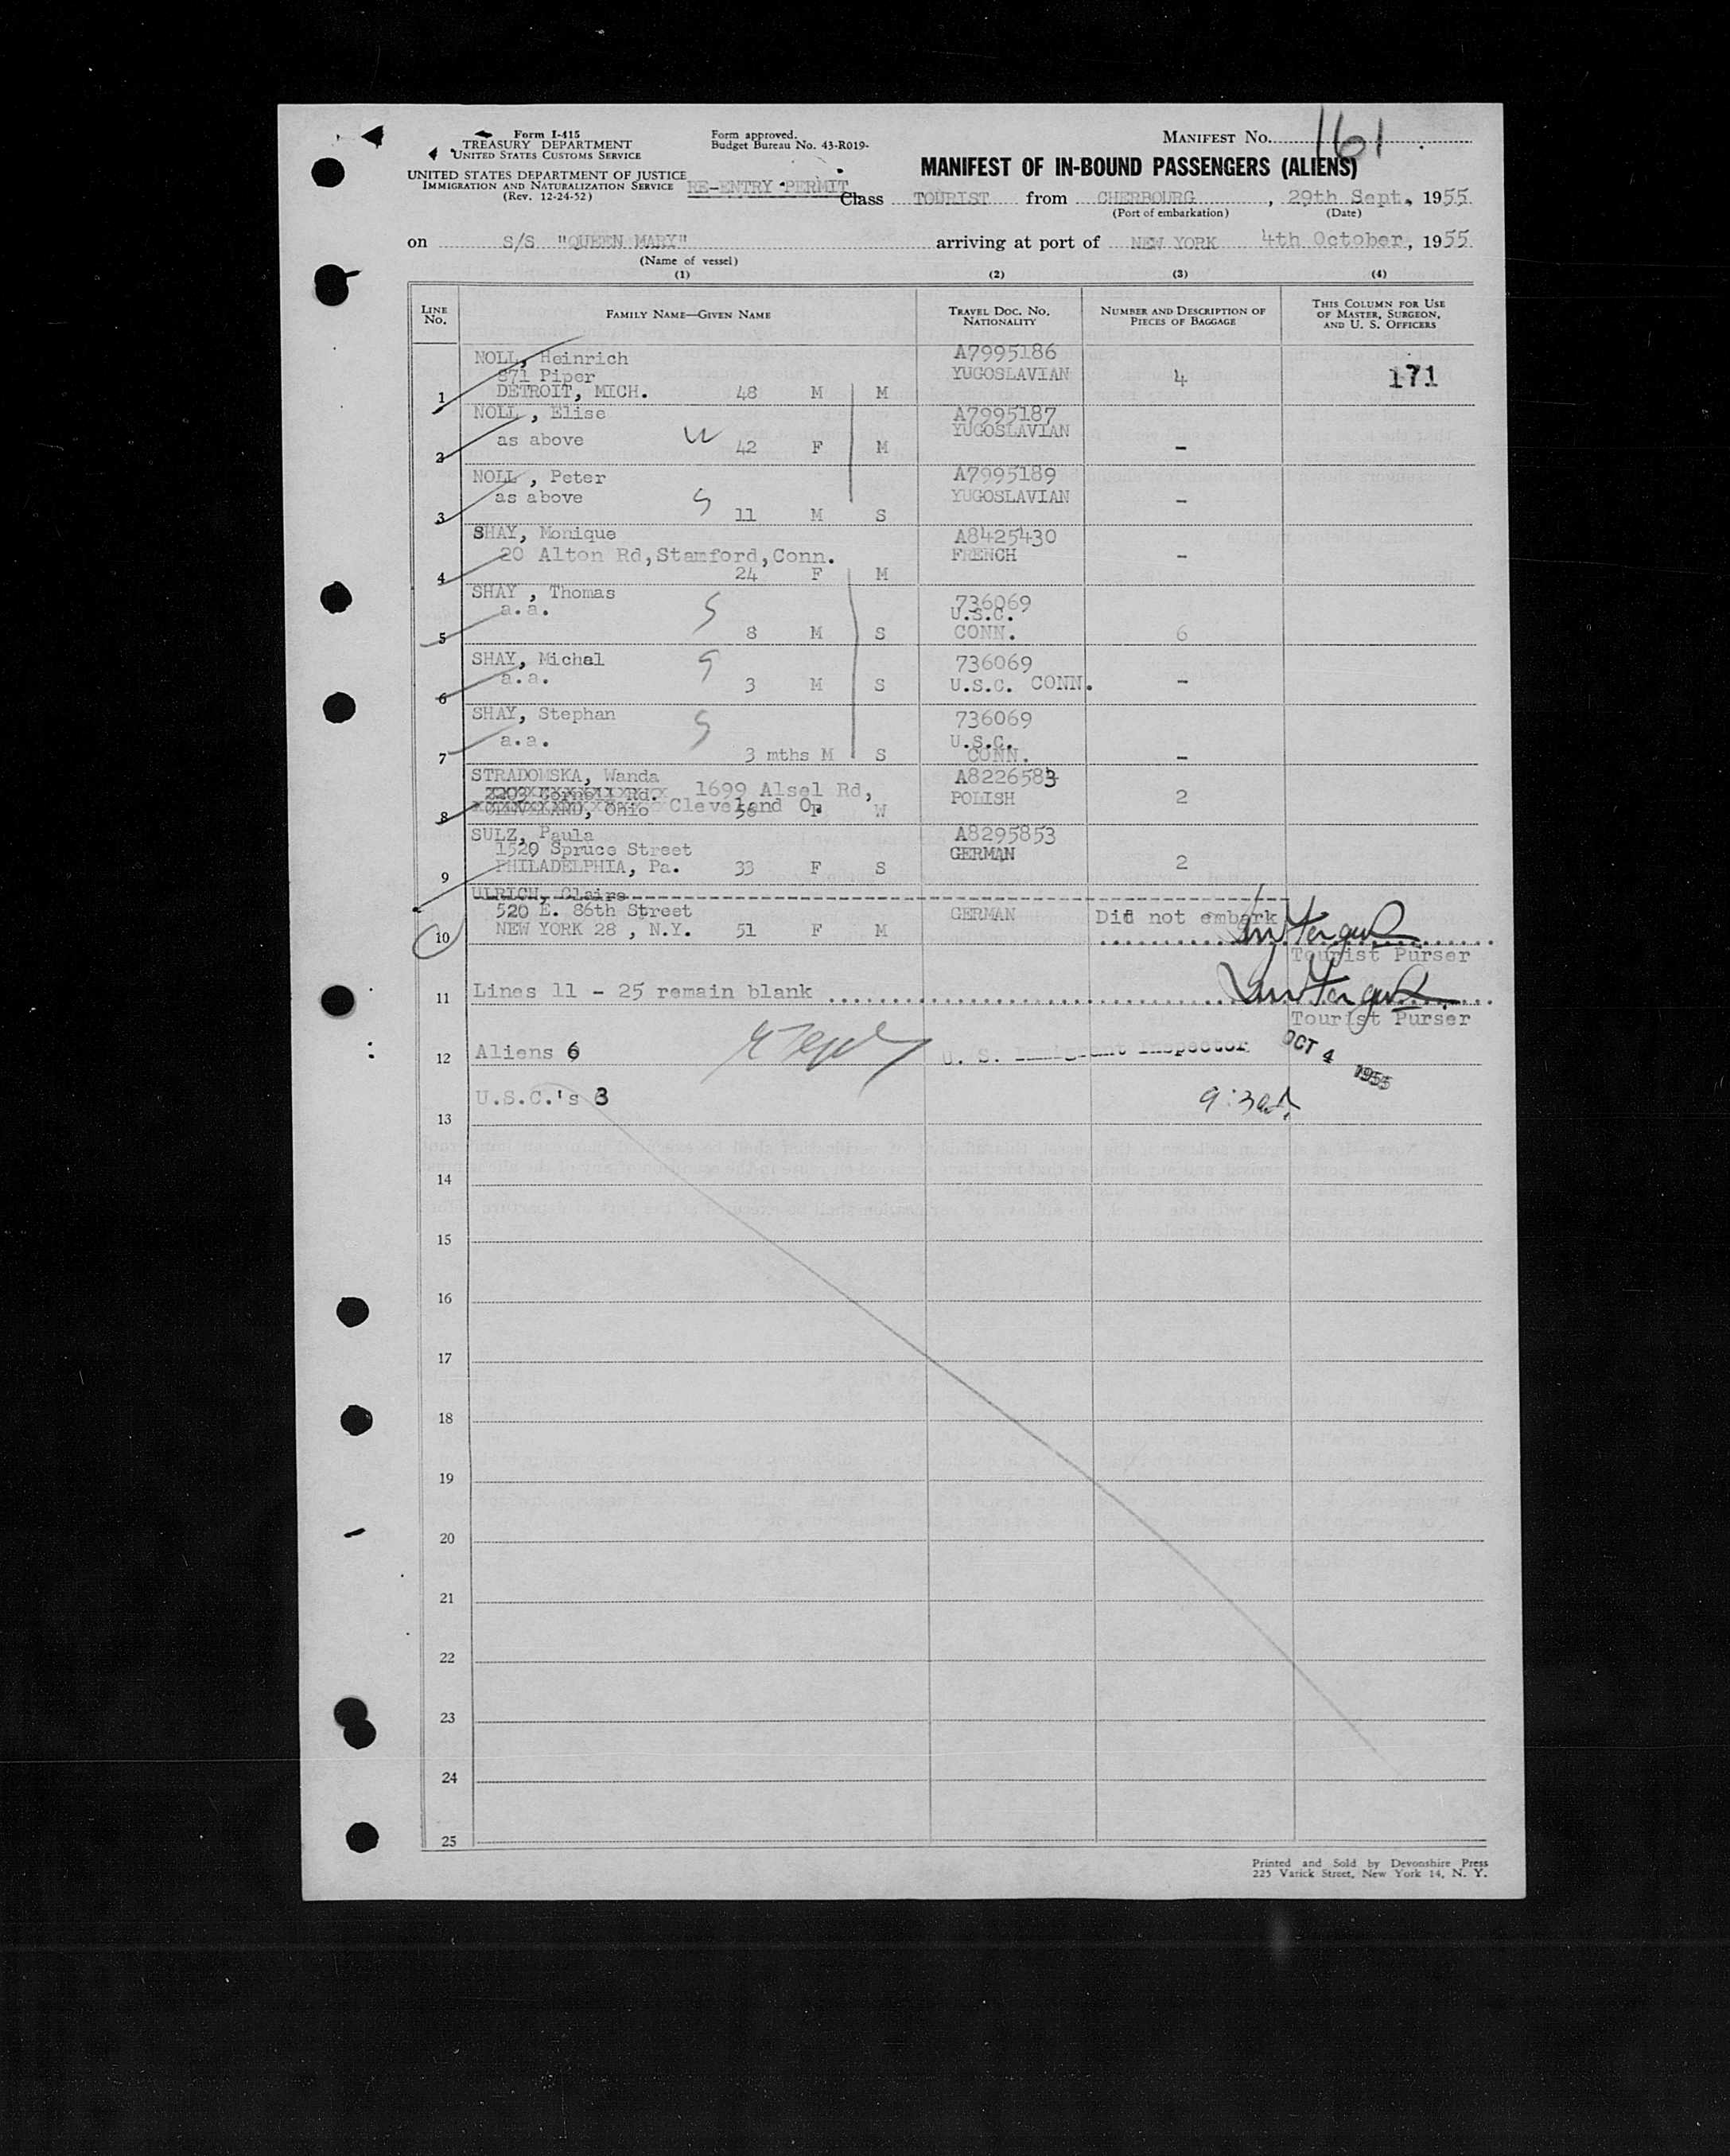 Form I-415
TREASURY DEPARTMENT
UNITED STATES CUSTOMS SERVICE
UNITED STATES DEPARTMENT OF JUSTICE
IMMIGRATION AND NATURALIZATION SERVICE
(Rev. 12-24-52)
Form approved.
Budget Bureau No. 43-R019-
RE-ENTRY PERMIT
MANIFEST NO. 161
MANIFEST OF IN-BOUND PASSENGERS (ALIENS)
Class TOURIST from CHERBOURG, 29th Sept., 1955
(Port of embarkation) (Date)
on S/S "QUEEN MARY" arriving at port of NEW YORK 4th October, 1955
(Name of vessel)
(1) (2) (3) (4)
LINE NO. FAMILY NAME—GIVEN NAME TRAVEL DOC. NO. NATIONALITY NUMBER AND DESCRIPTION OF PIECES OF BAGGAGE THIS COLUMN FOR USE OF MASTER, SURGEON, AND U. S. OFFICERS
NOLL, Heinrich A7995186
871 Piper YUGOSLAVIAN 4 171
1 DETROIT, MICH. 48 M M
NOLL , Elise A7995187
as above W YUGOSLAVIAN
2 42 F M -
NOLL , Peter A7995189
as above S YUGOSLAVIAN -
3 11 M S
SHAY, Monique A8425430
20 Alton Rd,Stamford,Conn. FRENCH -
4 24 F M
SHAY , Thomas 736069
a.a. S U.S.C.
5 8 M S CONN. 6
SHAY, Michel S 736069
a.a.
6 3 M S U.S.C. CONN. -
SHAY, Stephan S 736069
a.a. U.S.C.
7 3 mths M S CONN. -
STRADOMSKA, Wanda A8226583
2203 Cornell Rd. 1699 Alsel Rd, POLISH 2
8 CLEVELAND, Ohio Cleveland O. F W
SULZ, Paula A8295853
1529 Spruce Street GERMAN
9 PHILADELPHIA, Pa. 33 F S 2
ULRICH, Claire
520 E. 86th Street GERMAN Did not embark
10 NEW YORK 28 , N.Y. 51 F M
Tourist Purser
11 Lines 11 - 25 remain blank
Tourist Purser
12 Aliens 6 U. S. Immigrant Inspector OCT 4 1955
13 U.S.C.'s 3
14
15
16
17
18
19
20
21
22
23
24
25
Printed and Sold by Devonshire Press
225 Varick Street, New York 14, N. Y.